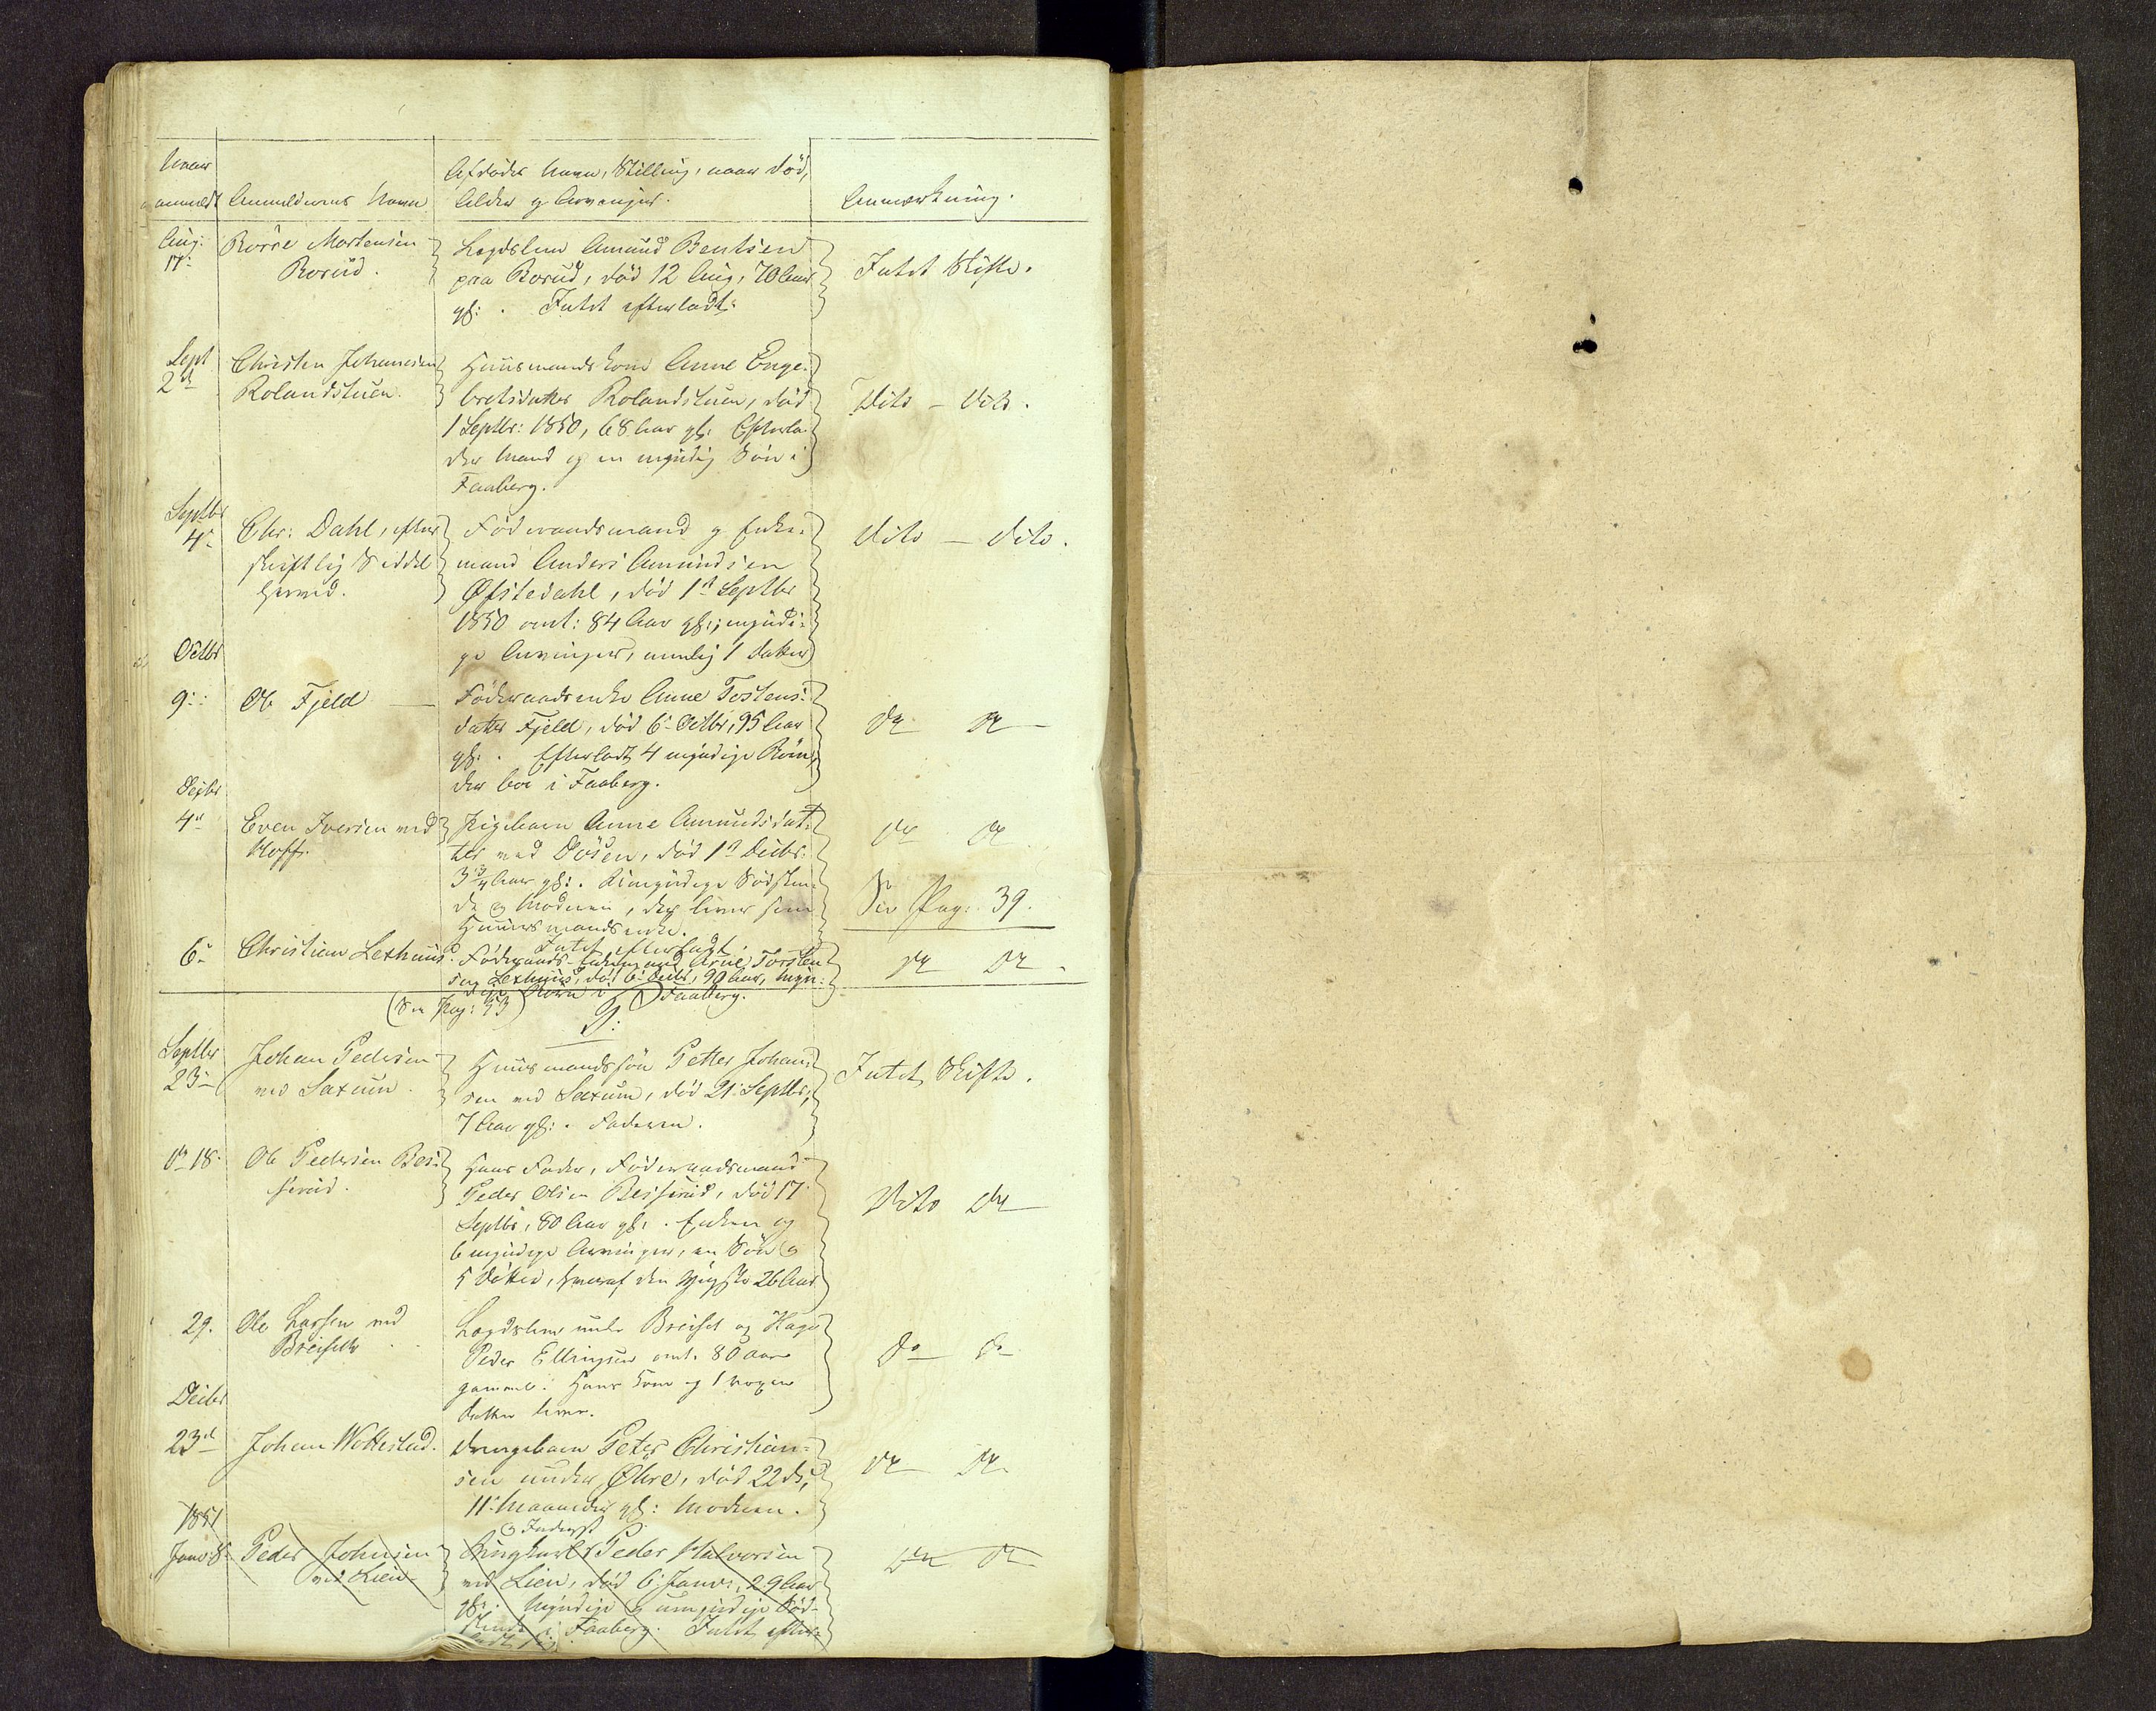 Naar
anmeldt
Anmelderens Navn.
Afdødes Navn, Stilling, naar død,
Alder og Arvinger.
Anmærkning.
Aug: 17:
Borre Mortensen
Borud.
Lægdslem Amund Bentsen
paa Borud, død 12 Aug, 70 Aar
gl: . Intet efterladt.
Intet Skifte.
Sept 2d
Christen Johannesen
Rolandstuen.
Huusmandskone Anne Enge-
bretsdatter Rolandstuen, død
1 Septbr: 1850, 68 Aar gl: Efterla-
der Mand og en myndig Søn i
Faaberg.
Dito - Dito.
Septbr 4-
Chr: Dahl, efter
skriftlig Seddel
herved.
Føderaadsmand og Enke-
mand Anders Amundsen
Øfstedahl, død 1st Septbr
1850 omt: 84 Aar gl:; myndi-
ge Arvinger, nemlig 1 Datter
Dito - Dito.
Octbr
9:
Ole Fjeld
Føderaadsenke Anne Tostens-
datter Fjeld, død 6- Octbr, 95 Aar
gl: . Efterladt 4 myndige Børn,
der boe i Faaberg.
Do Do
Decbr
4d
Even Iversen ved
Hoff.
Pigebarn Anne Amundsdat-
ter ved Døsen, død 1st Decbr:
3 3/4 Aar gl: . Umyndige Sødsken-
de og Moderen, der lever som
Huusmandsenke.
Intet efterladt.
Do Do
See Pag: 39.
6-
Christian Lethuus.
Føderaads-Enkemand Arne Torsten
sen Lethuus, død 6 Decbr, 90 Aar, myn-
dige Børn i Faaberg.
Do Do
(See Pag: 53)
Septbr
23-
Johan Pedersen
ved Saxum.
Huusmandssøn Petter Johan-
sen ved Saxum, død 21- Septbr,
7 Aar gl: . Faderen.
Intet Skifte.
Do 18-
Ole Pedersen Bes-
serud.
Hans Fader, Føderaadsmand
Peder Olsen Besserud, død 17
Septbr, 80 Aar gl: . Enken og
6 myndige Arvinger, en Søn og
5 Døttre, hvoraf den yngste 26 Aar
Dito Do
29.
Ole Larsen ved
Breiseth
Lægdslem under Breiset og Hage
Peder Ellingsen omt. 80 Aar
gammel. Hans Kone og 1 voxen
datter lever.
Do Do
Decbr
23d
Johan Wottestad.
Drengebarn Peter Christian-
sen under Øhre, død 22 ds,
11 Maaneder gl: Moderen.
Do Do
1851
Janr 8-
Peder Johnsen
ved Lien
og Inderst
Ungkarl Peder Halvorsen
ved Lien, død 6 Janr, 29 Aar
gl: . Myndige og umyndige Sød-
skende i Faaberg. Intet efter-
ladt sig.
Do Do